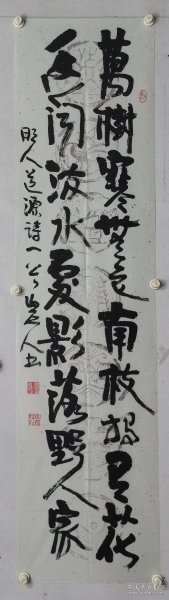 萬樹寒無色南枝獨有花
香聞流水處影落野人家
明人道源詩一公山人书